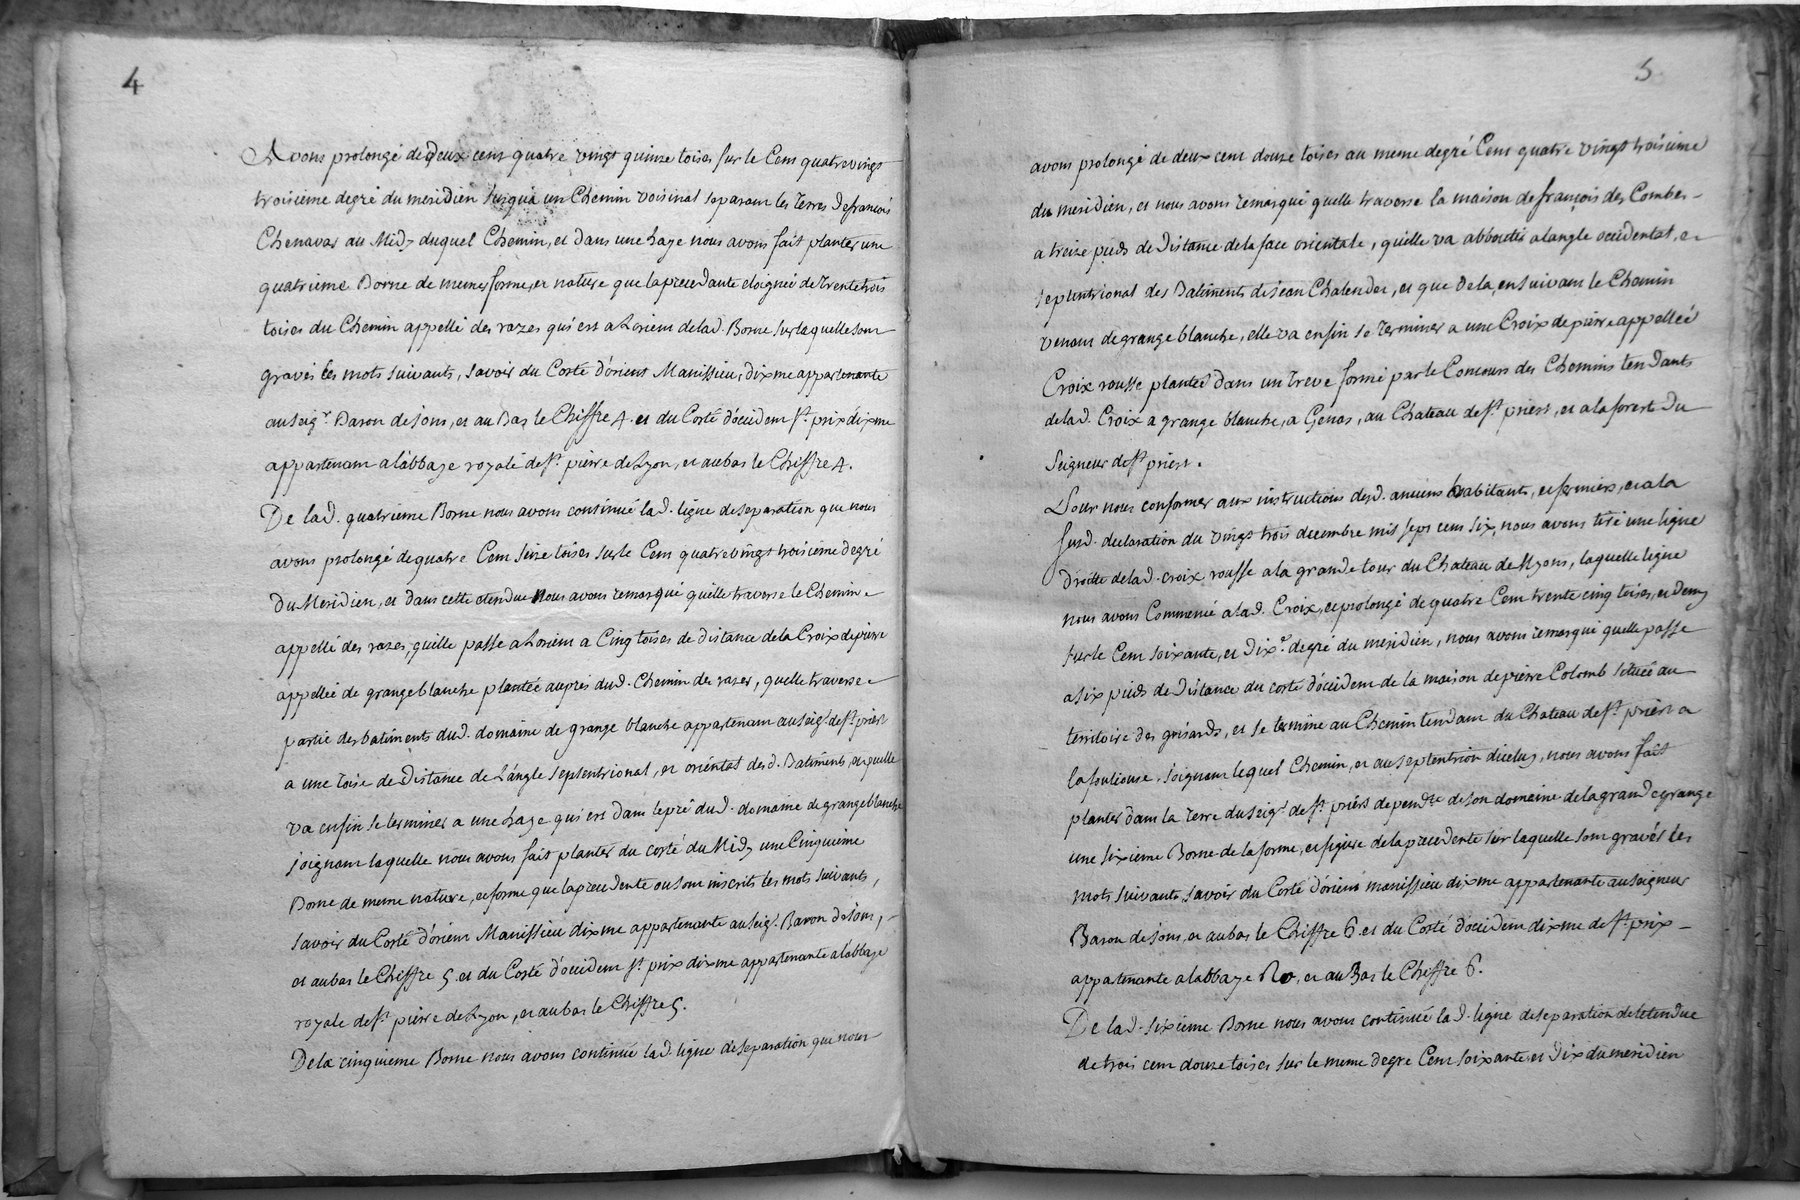 4
Avons prolongé de deux cens quatre vingt quinze toises sur le Cent quatrevingt
troisieme degré du meridien Jusqua un Chemin voisinal separant les terres de françois
Chenavas au Midy duquel Chemin, et dans une haye nous avons fait planter une
quatrieme Borne de meme forme, et nature que la precedente eloignée de trente trois
toises du Chemin appellé des razes qui est a Lorient de lad. Borne sur laquelle sont
gravés les mots suivants, savoir du Costé d'orient Manissieu, dixme appartenante
au seigr. Baron de Jons, et au Bas le Chiffre 4. et du Costé d'occident st. prix dixme
appartenant a l'abbaye royale de St. pierre de Lyon, et au bas le Chiffre 4.
De lad. quatrieme Borne nous avons continué lad. ligne de separation que nous
avons prolongé de quatre Cent seize toises sur le Cent quatrevingt troisieme degré
du Meridien, et dans cette etendue Nous avons remarqué quelle traverse le Chemin
appellé des razes, quelle passe a Lorient a Cinq toises de distance de la Croix de pierre
appellée de grange blanche plantée aupres dud. Chemin des razes, quelle traverse
partie des batiments dud. domaine de grange blanche appartenant au seigr. de St. priest
a une toise de Distance de L'angle septentrional, et oriental desd. Batiments, et quelle
va enfin se terminer a une haye qui est dans le pré dud. domaine de grange blanche
joignant laquelle nous avons fait planter du costé du Midy une Cinquieme
Borne de meme nature, et forme que la precedente ou sont inscrits les mots suivants,
savoir du Costé d'orient Manissieu dixme appartenante au seigr. Baron de Jons,
et au bas le Chiffre 5. et du Costé d'occident st. prix dixme appartenante a l'abbaye
royale de St. pierre de Lyon, et au bas le Chiffre 5.
De la cinquieme Borne nous avons continué lad. ligne de separation que nous
5
avons prolongé de deux cent douze toises au meme degré Cent quatre vingt troisieme
du meridien, et nous avons remarqué quelle traverse la maison de françois des Combes
a treize pieds de distance de la face orientale, quelle va abboutir a langle occidental, et
septentrional des Batiments de jean Chalender, et que de la, en suivant le Chemin
venant de grange blanche, elle va enfin se terminer a une Croix de pierre appellée
Croix rousse plantée dans un treve formé par le Concours des Chemins tendants
de lad. Croix a grange blanche, a Genas, au Chateau de st. priest, et a la forest du
Seigneur de st. priest.
Pour nous conformer aux instructions desd. anciens habitants, et fermiers, et a la
susd. declaration du vingt trois decembre mil sept cent six, nous avons tiré une ligne
droitte de lad. croix rousse a la grande tour du Chateau de Myons, laquelle ligne
nous avons Commencé a lad. Croix, et prolongé de quatre Cent trente cinq toises, et demy
sur le Cent soixante, et dixe. degré du meridien, nous avons remarqué quelle passe
a six pieds de Distance du costé d'occident de la maison de pierre Colomb située au
territoire des grisards, et se termine au Chemin tendant du Chateau de St. priest a
la fouliouse. joignant lequel Chemin, et au septentrion diceluy, nous avons fait
planter dans la terre du seigr. de st. priest dependte. de son domaine de la grand egrange
une sixieme Borne de la forme, et figure de la precedente sur laquelle sont gravés les
mots suivants, savoir du Costé d'orient manissieu dixme appartenante au seigneur
Baron de Jons, et au bas le Chiffre 6. et du Costé d'occident dixme de St. prix
appartenante a labbaye Ro, et au Bas le Chiffre 6.
De lad. sixieme Borne nous avons continué lad. ligne de separation de letendue
de trois cent douze toises sur le meme degre Cent soixante, et dix du meridien